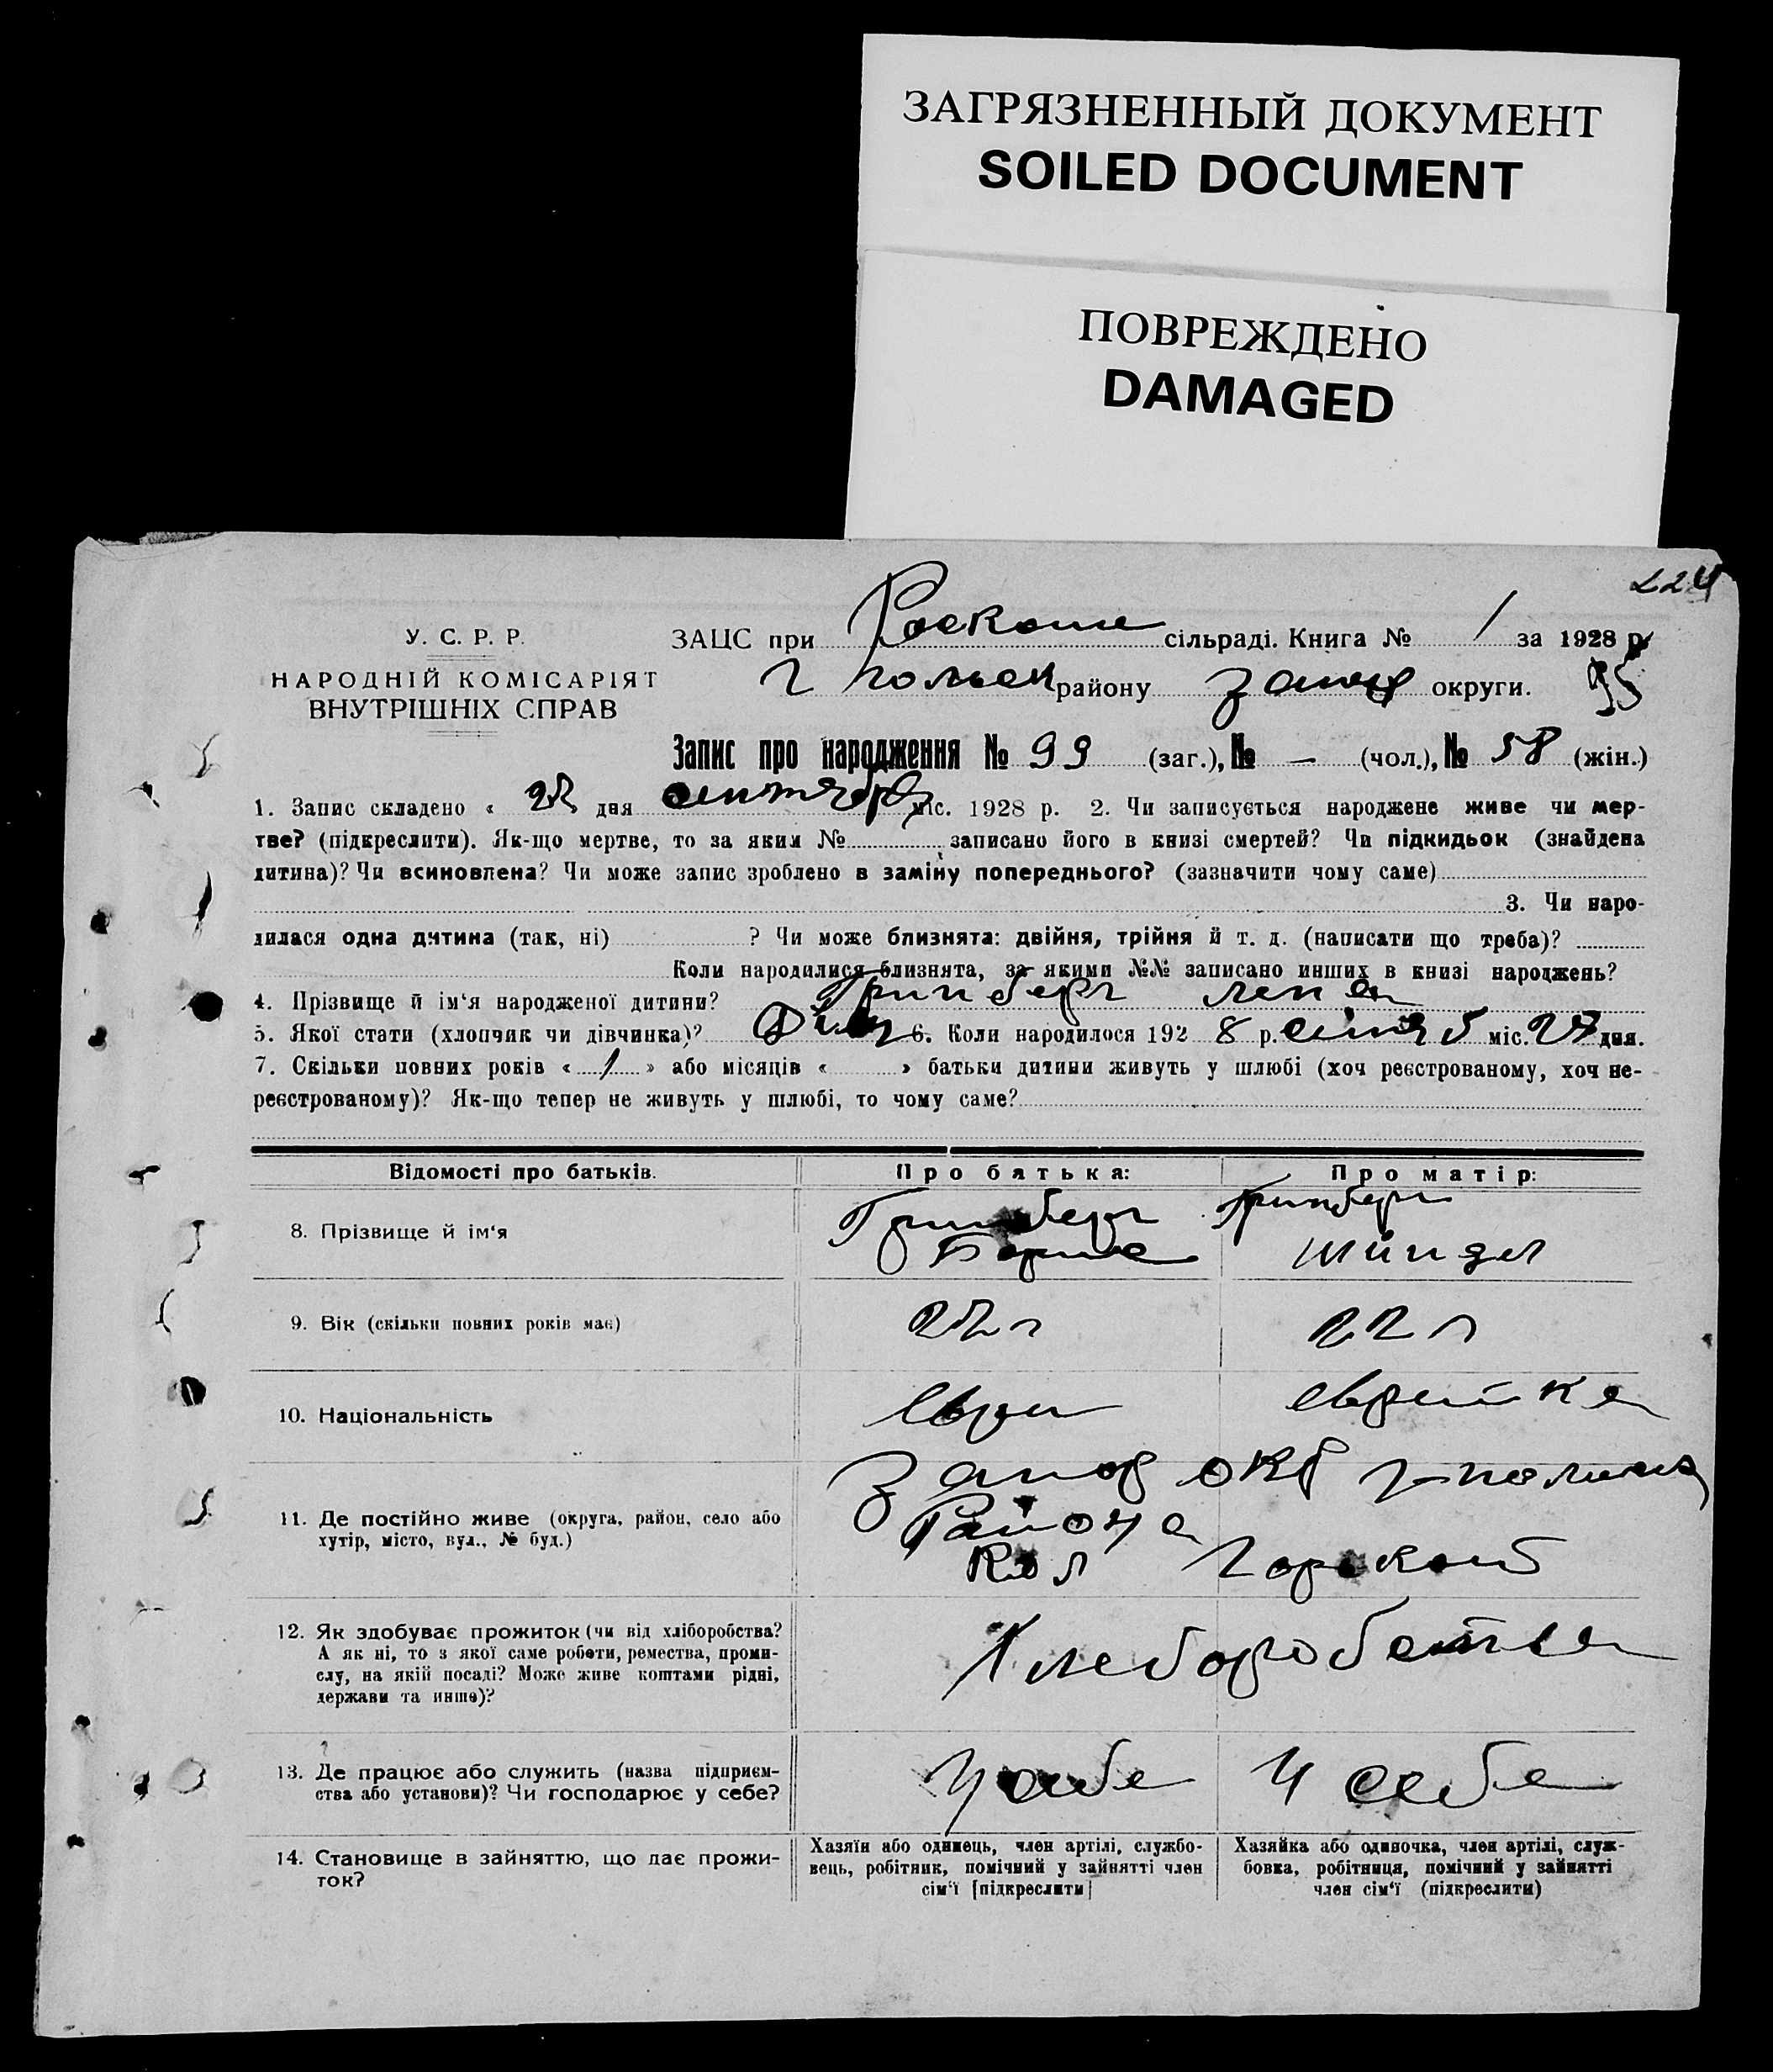 ЗАГРЯЗНЕННЫЙ ДОКУМЕНТ
SOILED DOCUMENT
ПОВРЕЖДЕНО
DAMAGED
224
У. С. Р. Р.
НАРОДНІЙ КОМІСАРІЯТ
ВНУТРІШНІХ СПРАВ
ЗАЦС при Роскоше сільраді. Книга № 1 за 1928 р.
Г польск району запор округи. 95
Запис про народження № 99 (заг.), № — (чол.), № 58 (жін.)
1. Запис складено « дня сентября міс. 1928 р. 2. Чи записується народжене живе чи мер-
тве? (підкреслити). Як-що мертве, то за яким № записано його в книзі смертей? Чи підкидьок (знайдена
дитина)? Чи всиновлена? Чи може запис зроблено в заміну попереднього? (зазначити чому саме)
3. Чи наро-
дилася одна дитина (так, ні) ? Чи може близнята: двійня, трійня й т. д. (написати що треба)?
Коли народилися близнята, за якими №№ записано инших в книзі народжень?
4. Прізвище й ім‘я народженої дитини? Гринберг
5. Якої стати (хлопчик чи дівчинка)? 6. Коли народилося 192 8 р. міс. 27 дня.
7. Скільки повних років « 1 » або місяців « » батьки дитини живуть у шлюбі (хоч реєстрованому, хоч не-
реєстрованому)? Як-що тепер не живуть у шлюбі, то чому саме?
Відомості про батьків. Про батька: Про матір:
8. Прізвище й ім‘я Гринберг Гринберг
Борис Шиндл
9. Вік (скільки повних років має) 22 л
10. Національність Еврей еврейка
11. Де постійно живе (округа, район, село або
хутір, місто, вул., № буд.)
запор окр г-польск
Района
Кол Горькой
12. Як здобуває прожиток (чи від хліборобства?
А як ні, то з якої саме роботи, ремества, проми-
слу, на якій посаді? Може живе коштами рідні,
держави та инше)?
Хлеборобства
13. Де працює або служить (назва підприєм-
ства або установи)? Чи господарює у себе?
У себе У себе
14. Становище в зайняттю, що дає прожи-
ток?
Хазяїн або одинець, член артілі, службо-
вець, робітник, помічний у зайнятті член
сім‘ї [підкреслити]
Хазяйка або одиночка, член артілі, служ-
бовка, робітниця, помічний у зайнятті
член сім‘ї (підкреслити)